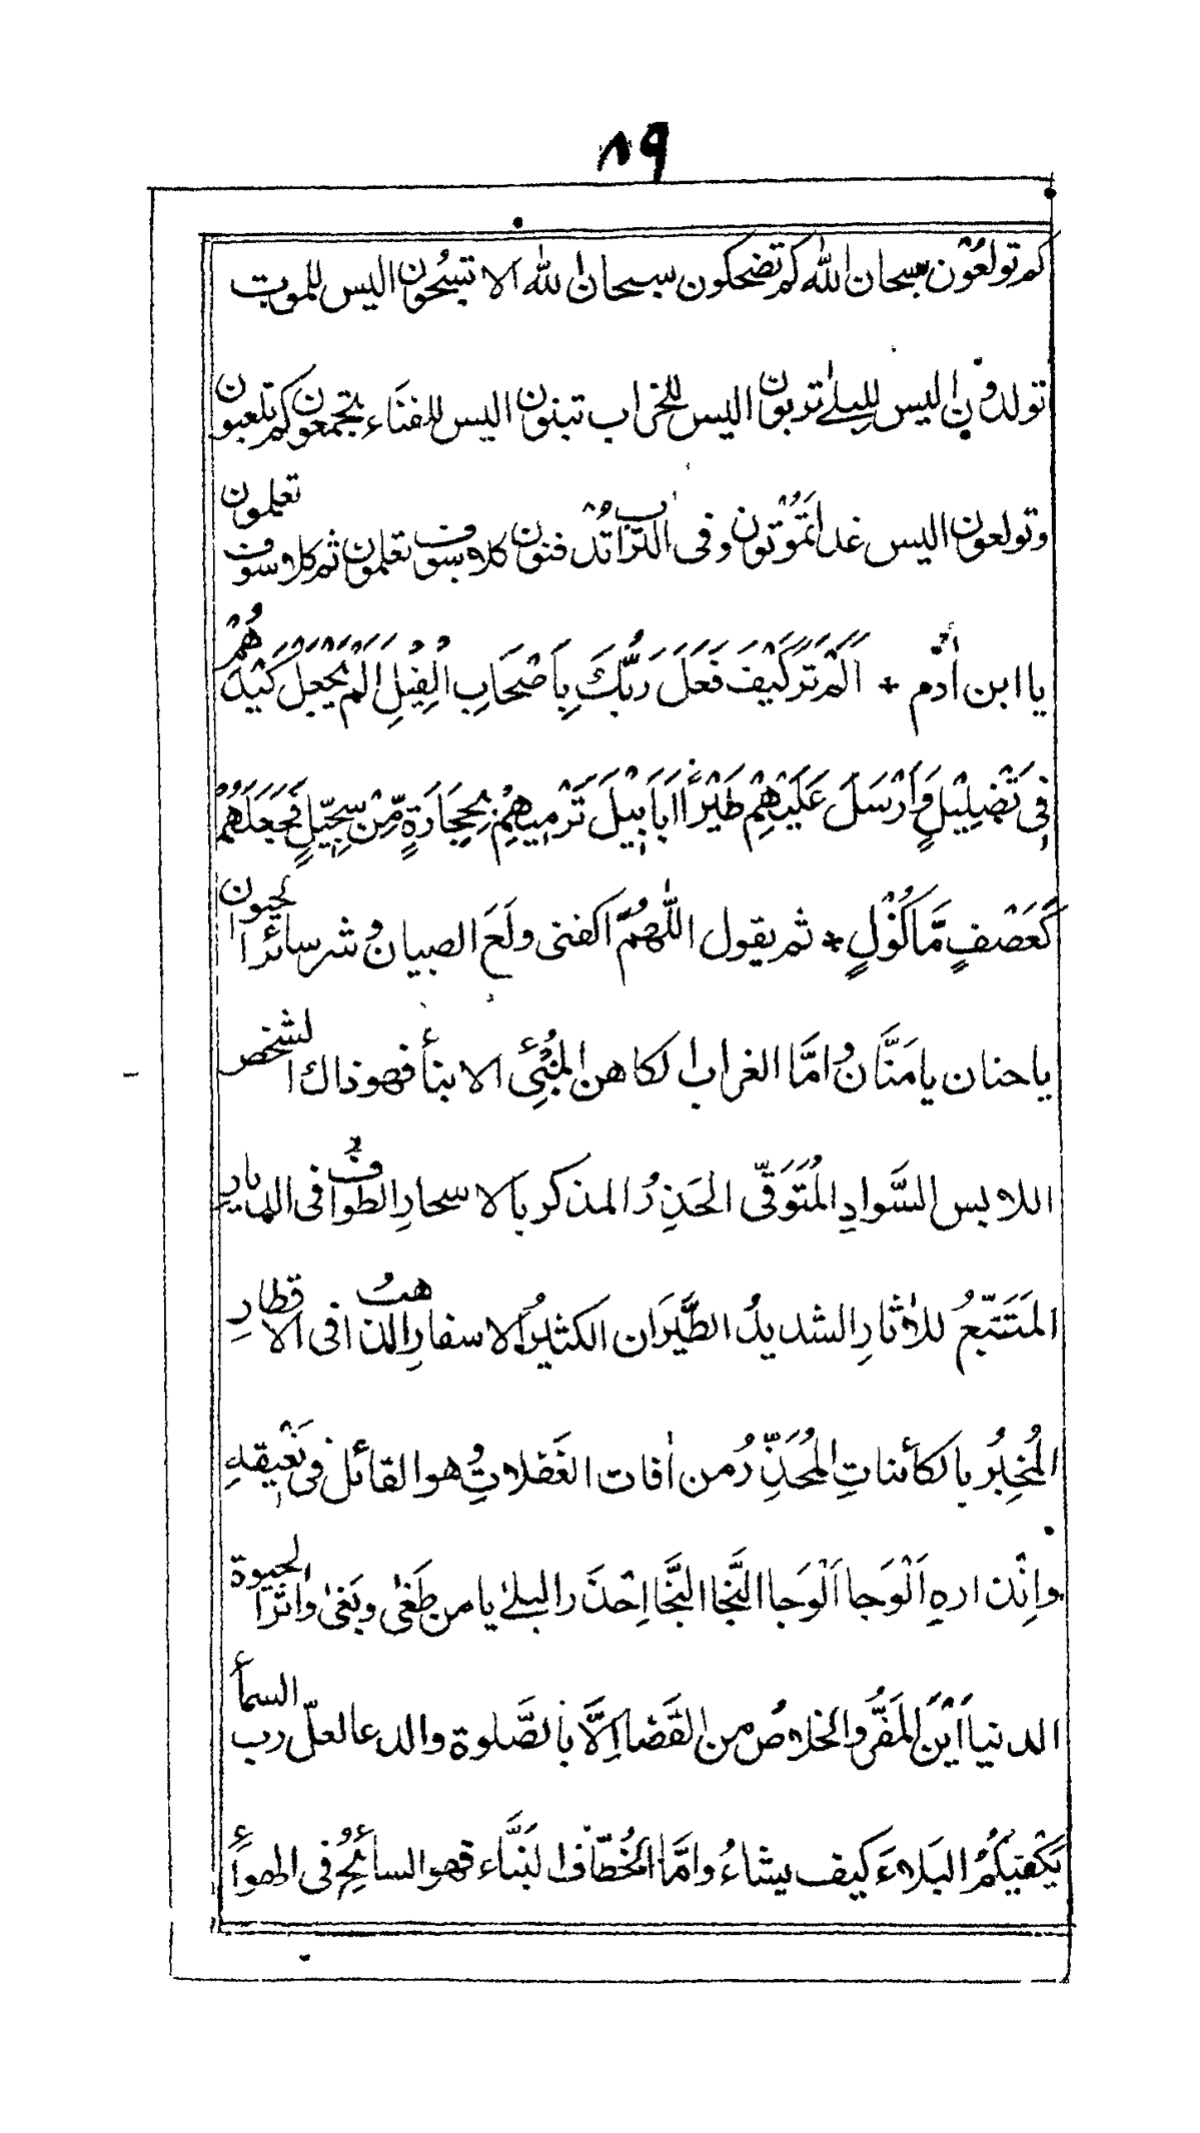 ٨٩
كم تولعون سبحان الله كم تضحكون سبحان الله الا تسبحون اليس للموت
تولدون اليس للبلى تربون اليس للخراب تبنون اليس للفناء تجمعون كم تلعبون
وتولعون اليس غدا تموتون وفى التراب تدفنون كلا سوف تعلمون ثم كلا سوف تعلمون
يا ابن اٰدم * اَلَمْ تَرَ كَيْفَ فَعَلَ رَبُّكَ بِاَصْحَابِ الْفِيْلِ اَلَمْ يَجْعَلْ كَيْدَهُمْ
فِى تَضْلِيْلٍ وَاَرْسَلَ عَلَيْهِمْ طَيْرًا اَبَابِيْلَ تَرْمِيهِمْ بِحِجَارَةٍ مِّنْ سِجِّيْلٍ فَجَعَلَهُمْ
كَعَصْفٍ مَّاكُوْلٍ * ثم يقول اللّٰهُمَّ اكفنى ولَعَ الصبيان وشر سائر الحيوان
يا حنان يا مَنَّان وامَّا الغراب الكاهن المُنْبِئُ الانبأ فهو ذاك الشخص
اللابس السَّوادِ المُتَوَقّى الحَذِرُ المذكر بالاسحارِ الطوافُ فى الديارِ
المَتَتَبّعُ للاٰثارِ الشديدُ الطَّيَرَان الكثيرُ الاسفارِ الذاهبُ فى الاقطارِ
المُخبِرُ بالكائناتِ المُحَذِّرُ من اٰفات الغَفَلاتِ وهو القائل فى نَعْيِقهِ
وانِْذارهِ اَلْوَجا اَلْوَجا النَّجا النَّجا اِحْذَر البلىٰ يا من طَغىٰ وبَغىٰ واٰثرا الحيوة
الدنيا اَيْنَ المَفَرُّ والخلاصُ من القَضا اِلَّا بالصَّلوة والدعا لعلّ رب السمأ
يَكْفِيْكُمُ البَلاءَ كيف يشاءُ وامَّا الخُطّاف البَنَّاء فهو السائحُ فى الهوأ